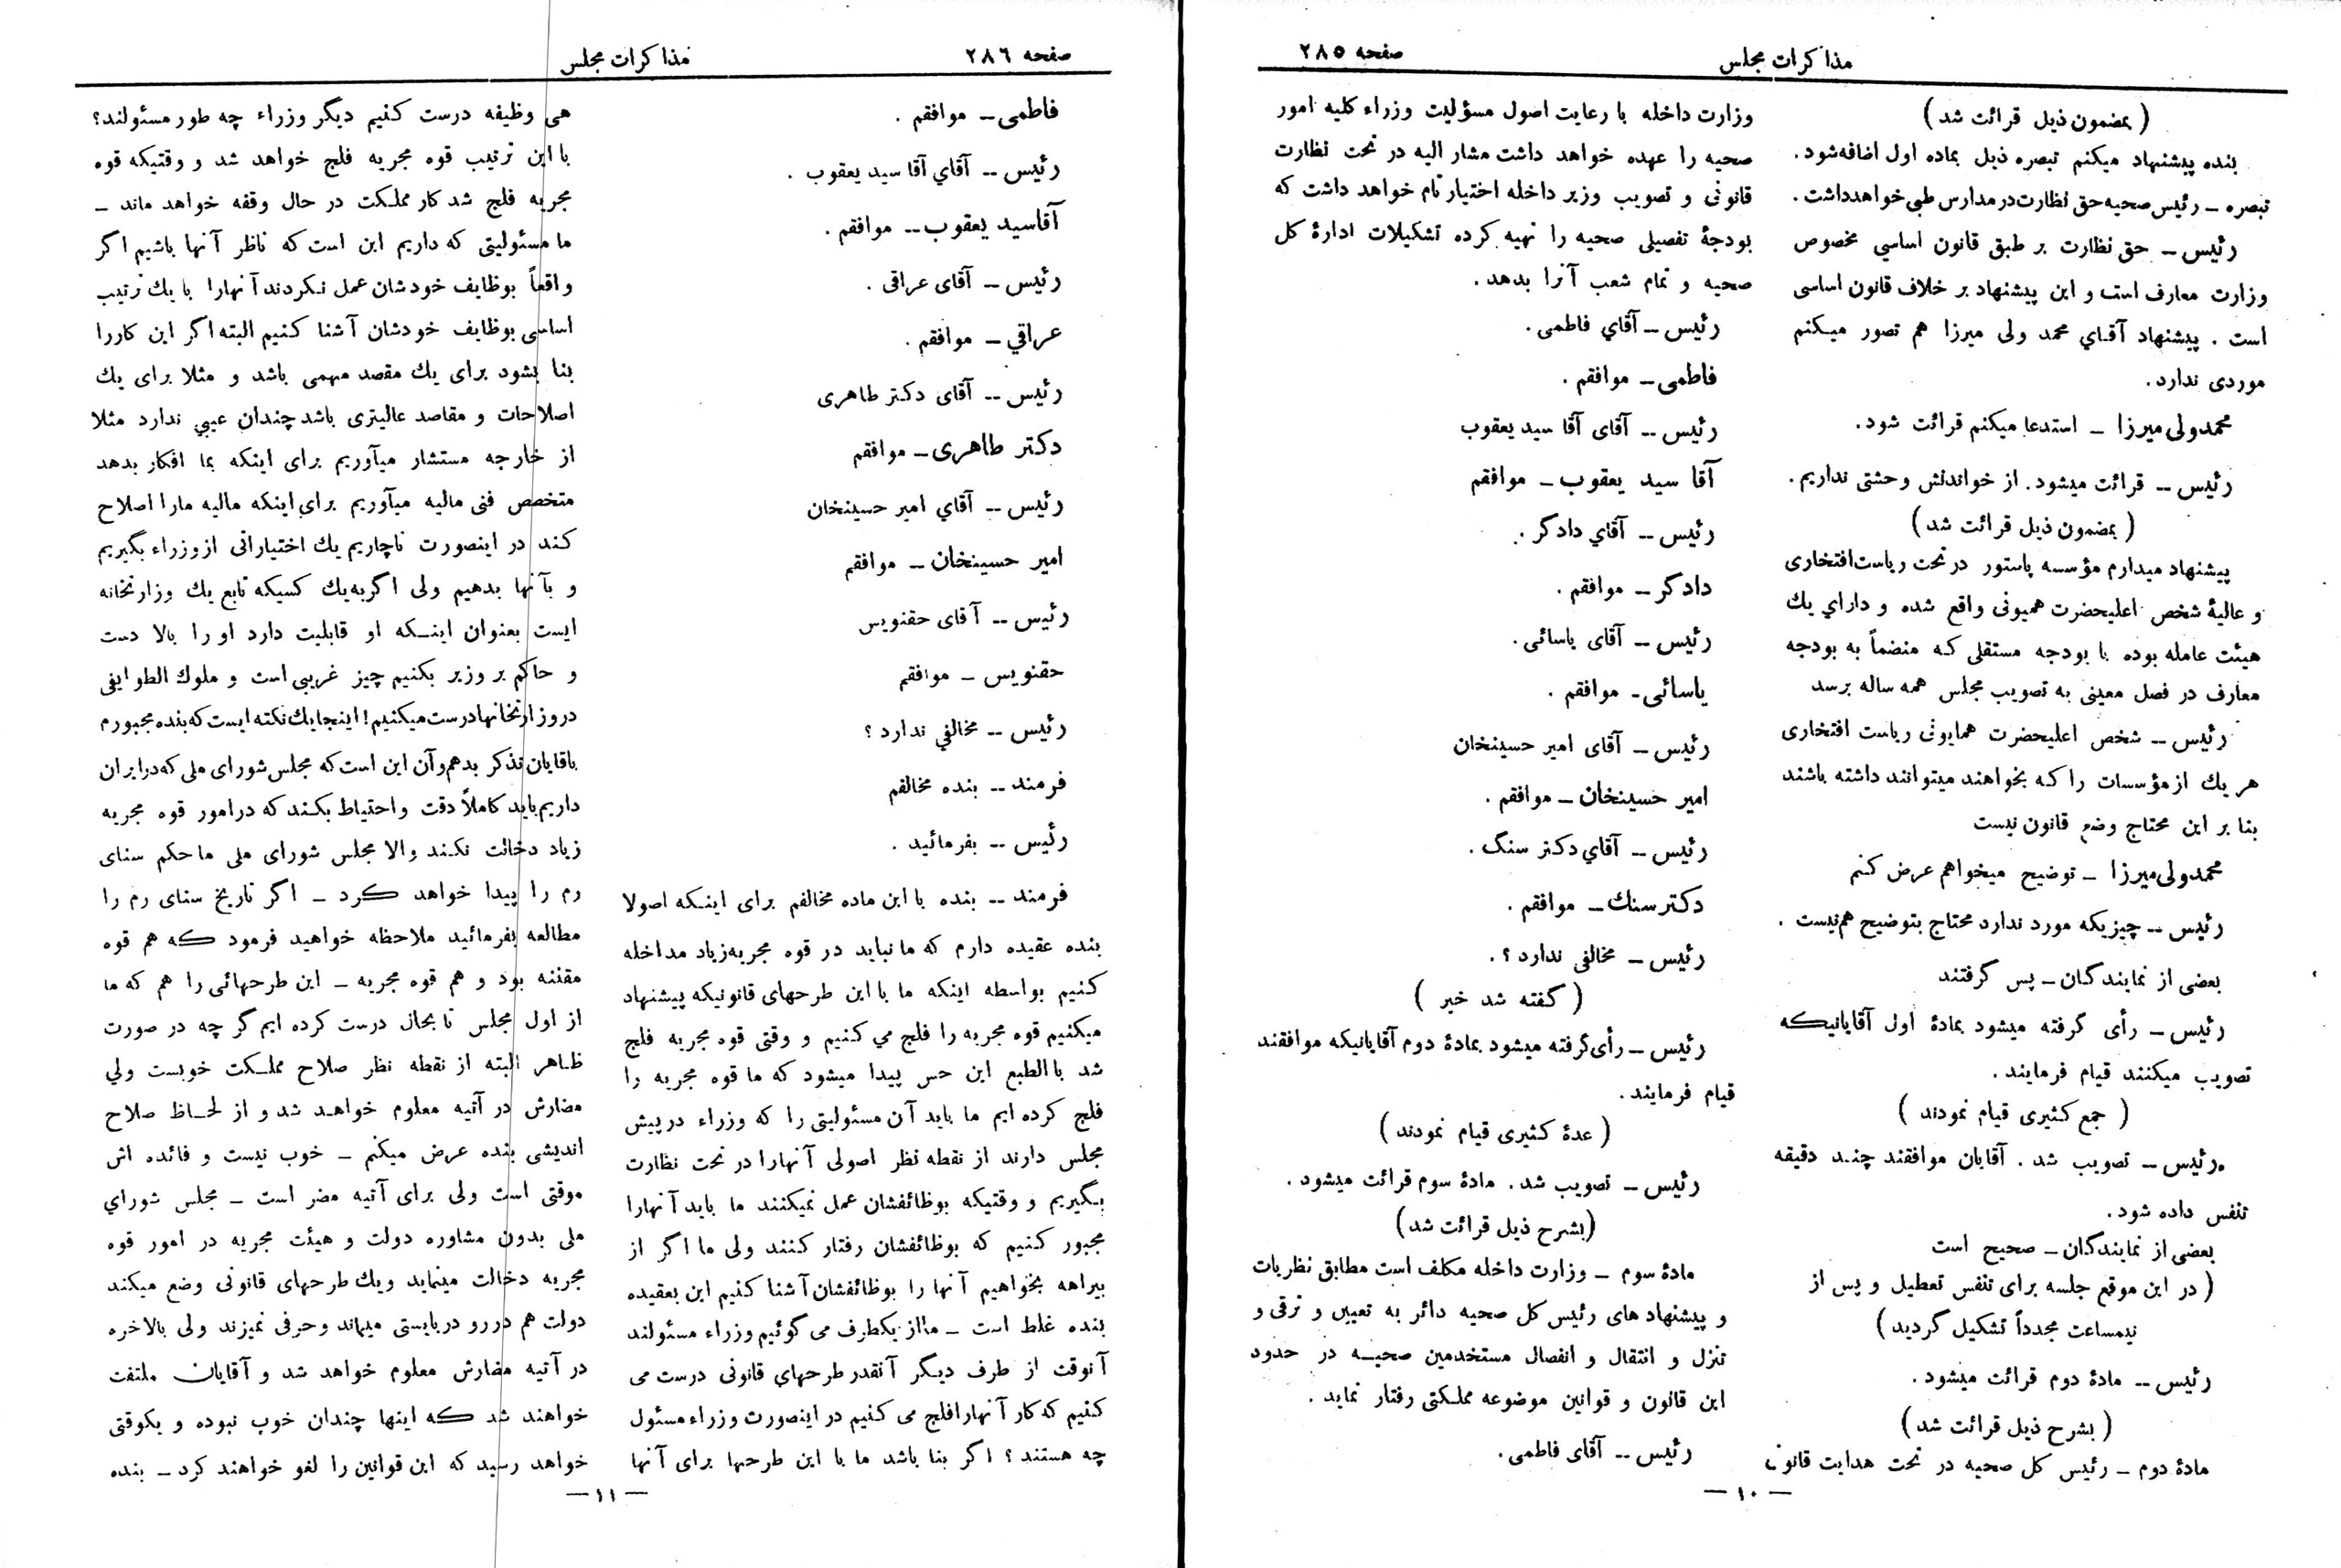 مذاکرات مجلس
صفحه ۲۸۵
( بمضمون ذیل قرائت شد )
بنده پیشنهاد میکنم تبصره ذیل بماده اول اضافه شود.
تبصره ــ رئیس صحیه حق نظارت در مدارس طبی خواهد داشت.
رئیس ــ حق نظارت بر طبق قانون اساسي مخصوص
وزارت معارف است و این پیشنهاد بر خلاف قانون اساسی
است . پیشنهاد آقاي محمد ولی میرزا هم تصور میکنم
موردی ندارد.
محمدولی میرزا ــ استدعا میکنم قرائت شود.
رئیس ــ قرائت میشود. از خواندنش وحشتی نداریم.
( بمضمون ذیل قرائت شد )
پیشنهاد میدارم مؤسسه پاستور در تحت ریاست افتخاری
و عالیهٔ شخص اعلیحضرت همیونی واقع شده و داراي یك
هیئت عامله بوده با بودجه مستقلی که منضماً به بودجه
معارف در فصل معینی به تصویب مجلس همه ساله برسد
رئیس ــ شخص اعلیحضرت همایونی ریاست افتخاری
هر یك از مؤسسات را که بخواهند میتوانند داشته باشند
بنا بر این محتاج وضع قانون نیست
محمدولی میرزا ــ توضیح میخواهم عرض کنم
رئیس ــ چیزیکه مورد ندارد محتاج بتوضیح هم نیست .
بعضی از نمایندگان ــ پس گرفتند
رئیس ــ رأی گرفته میشود بمادهٔ اول آقایانیکه
تصویب میکنند قیام فرمایند.
( جمع کثیری قیام نمودند )
رئیس ــ تصویب شد . آقایان موافقند چند دقیقه
تنفس داده شود.
بعضی از نمایندگان ــ صحیح است
( در این موقع جلسه برای تنفس تعطیل و پس از
نیمساعت مجدداً تشکیل گردید )
رئیس ــ مادهٔ دوم قرائت میشود.
( بشرح ذیل قرائت شد )
مادهٔ دوم ــ رئیس کل صحیه در تحت هدایت قانونی
وزارت داخله با رعایت اصول مسؤلیت وزراء کلیه امور
صحیه را عهده خواهد داشت مشار الیه در تحت نظارت
قانونی و تصویب وزیر داخله اختیار تام خواهد داشت که
بودجهٔ تفصیلی صحیه را تهیه کرده تشکیلات ادارهٔ کل
صحیه و تمام شعب آنرا بدهد.
رئیس ــ آقاي فاطمی.
فاطمی ــ موافقم.
رئیس ــ آقای آقا سید یعقوب
آقا سید یعقوب ــ موافقم
رئیس ــ آقاي دادگر .
دادگر ــ موافقم.
رئیس ــ آقای یاسائی.
یاسائی ــ موافقم .
رئیس ــ آقای امیر حسینخان
امیر حسینخان ــ موافقم.
رئیس ــ آقاي دکتر سنگ .
دکتر سنك ــ موافقم.
رئیس ــ مخالفی ندارد ؟ .
( گفته شد خیر )
رئیس ــ رأی گرفته میشود بمادهٔ دوم آقایانیکه موافقند
قیام فرمایند.
( عدهٔ کثیری قیام نمودند )
رئیس ــ تصویب شد. مادهٔ سوم قرائت میشود.
(بشرح ذیل قرائت شد)
مادهٔ سوم ــ وزارت داخله مکلف است مطابق نظریات
و پیشنهاد های رئیس کل صحیه دائر به تعیین و ترقی و
تنزل و انتقال و انفصال مستخدمین صحیه در حدود
این قانون و قوانین موضوعه مملکتی رفتار نماید .
رئیس ــ آقای فاطمی.
ــ ۱۰ ــ
صفحه ۲۸٦
مذاکرات مجلس
فاطمی ــ موافقم .
رئیس ــ آقاي آقا سید یعقوب .
آقاسید یعقوب ــ موافقم.
رئیس ــ آقای عراقی .
عراقي ــ موافقم .
رئیس ــ آقای دکتر طاهری
دکتر طاهری ــ موافقم
رئیس ــ آقاي امیر حسینخان
امیر حسینخان ــ موافقم
رئیس ــ آقای حقنویس
حقنویس ــ موافقم
رئیس ــ مخالفي ندارد ؟
فرمند ــ بنده مخالفم
رئیس ــ بفرمائید .
فرمند ــ بنده با این ماده مخالفم برای اینکه اصولا
بنده عقیده دارم که ما نباید در قوه مجریه زیاد مداخله
کنیم بواسطه اینکه ما با این طرحهای قانونیکه پیشنهاد
میکنیم قوه مجریه را فلج می کنیم و وقتی قوه مجریه فلج
شد با الطبع این حس پیدا میشود که ما قوه مجریه را
فلج کرده ایم ما باید آن مسئولیتی را که وزراء در پیش
مجلس دارند از نقطه نظر اصولی آنهارا در تحت نظارت
بگیریم و وقتیکه بوظائفشان عمل نمیکنند ما باید آنهارا
مجبور کنیم که بوظائفشان رفتار کنند ولی ما اگر از
بیراهه بخواهیم آنها را بوظائفشان آشنا کنیم این بعقیده
بنده غلط است ــ ما از یکطرف می گوئیم وزراء مسئولند
آنوقت از طرف دیگر آنقدر طرحهاي قانونی درست می
کنیم که کار آنهارا فلج می کنیم در اینصورت وزراء مسئول
چه هستند ؟ اگر بنا باشد ما با این طرحها برای آنها
هی وظیفه درست کنیم دیگر وزراء چه طور مسئولند؟
با این ترتیب قوه مجریه فلج خواهد شد و وقتیکه قوه
مجریه فلج شد کار مملکت در حال وقفه خواهد ماند ــ
ما مسئولیتی که داریم این است که ناظر آنها باشیم اگر
واقعاً بوظایف خودشان عمل نکردند آنهارا با یك ترتیب
اساسی بوظایف خودشان آشنا کنیم البته اگر این کاررا
بنا بشود برای یك مقصد مهمی باشد و مثلا برای یك
اصلاحات و مقاصد عالیتری باشد چندان عیبي ندارد مثلا
از خارجه مستشار میآوریم برای اینکه بما افکار بدهد
متخصص فنی مالیه میآوریم براي اینکه مالیه مارا اصلاح
کند در اینصورت ناچاریم یك اختیاراتی از وزراء بگیریم
و بآنها بدهیم ولی اگر به یك کسیکه تابع یك وزارتخانه
ایست بعنوان اینکه او قابلیت دارد او را بالا دست
و حاکم بر وزیر بکنیم چیز غریبی است و ملوك الطوایفی
در وزارتخانها درست میکنیم! اینجا یك نکته ایست که بنده مجبورم
باقایان تذکر بدهم و آن این است که مجلس شورای ملی که در ایران
داریم باید کاملاً دقت و احتیاط بکند که در امور قوه مجریه
زیاد دخالت نکند والا مجلس شورای ملی ما حکم سنای
رم را پیدا خواهد کرد ــ اگر تاریخ سنای رم را
مطالعه بفرمائید ملاحظه خواهید فرمود که هم قوه
مقننه بود و هم قوه مجریه ــ این طرحهائی را هم که ما
از اول مجلس تا بحال درست کرده ایم گر چه در صورت
ظاهر البته از نقطه نظر صلاح مملکت خوبست ولي
مضارش در آتیه معلوم خواهد شد و از لحاظ صلاح
اندیشی بنده عرض میکنم ــ خوب نیست و فائده اش
موقتی است ولی برای آتیه مضر است ــ مجلس شوراي
ملی بدون مشاوره دولت و هیئت مجریه در امور قوه
مجریه دخالت مینماید و یك طرحهای قانونی وضع میکند
دولت هم در رو دربایستی میماند و حرفی نمیزند ولی بالاخره
در آتیه مضارش معلوم خواهد شد و آقایان ملتفت
خواهند شد که اینها چندان خوب نبوده و یکوقتی
خواهد رسید که این قوانین را لغو خواهند کرد ــ بنده
ــ ۱۱ ــ